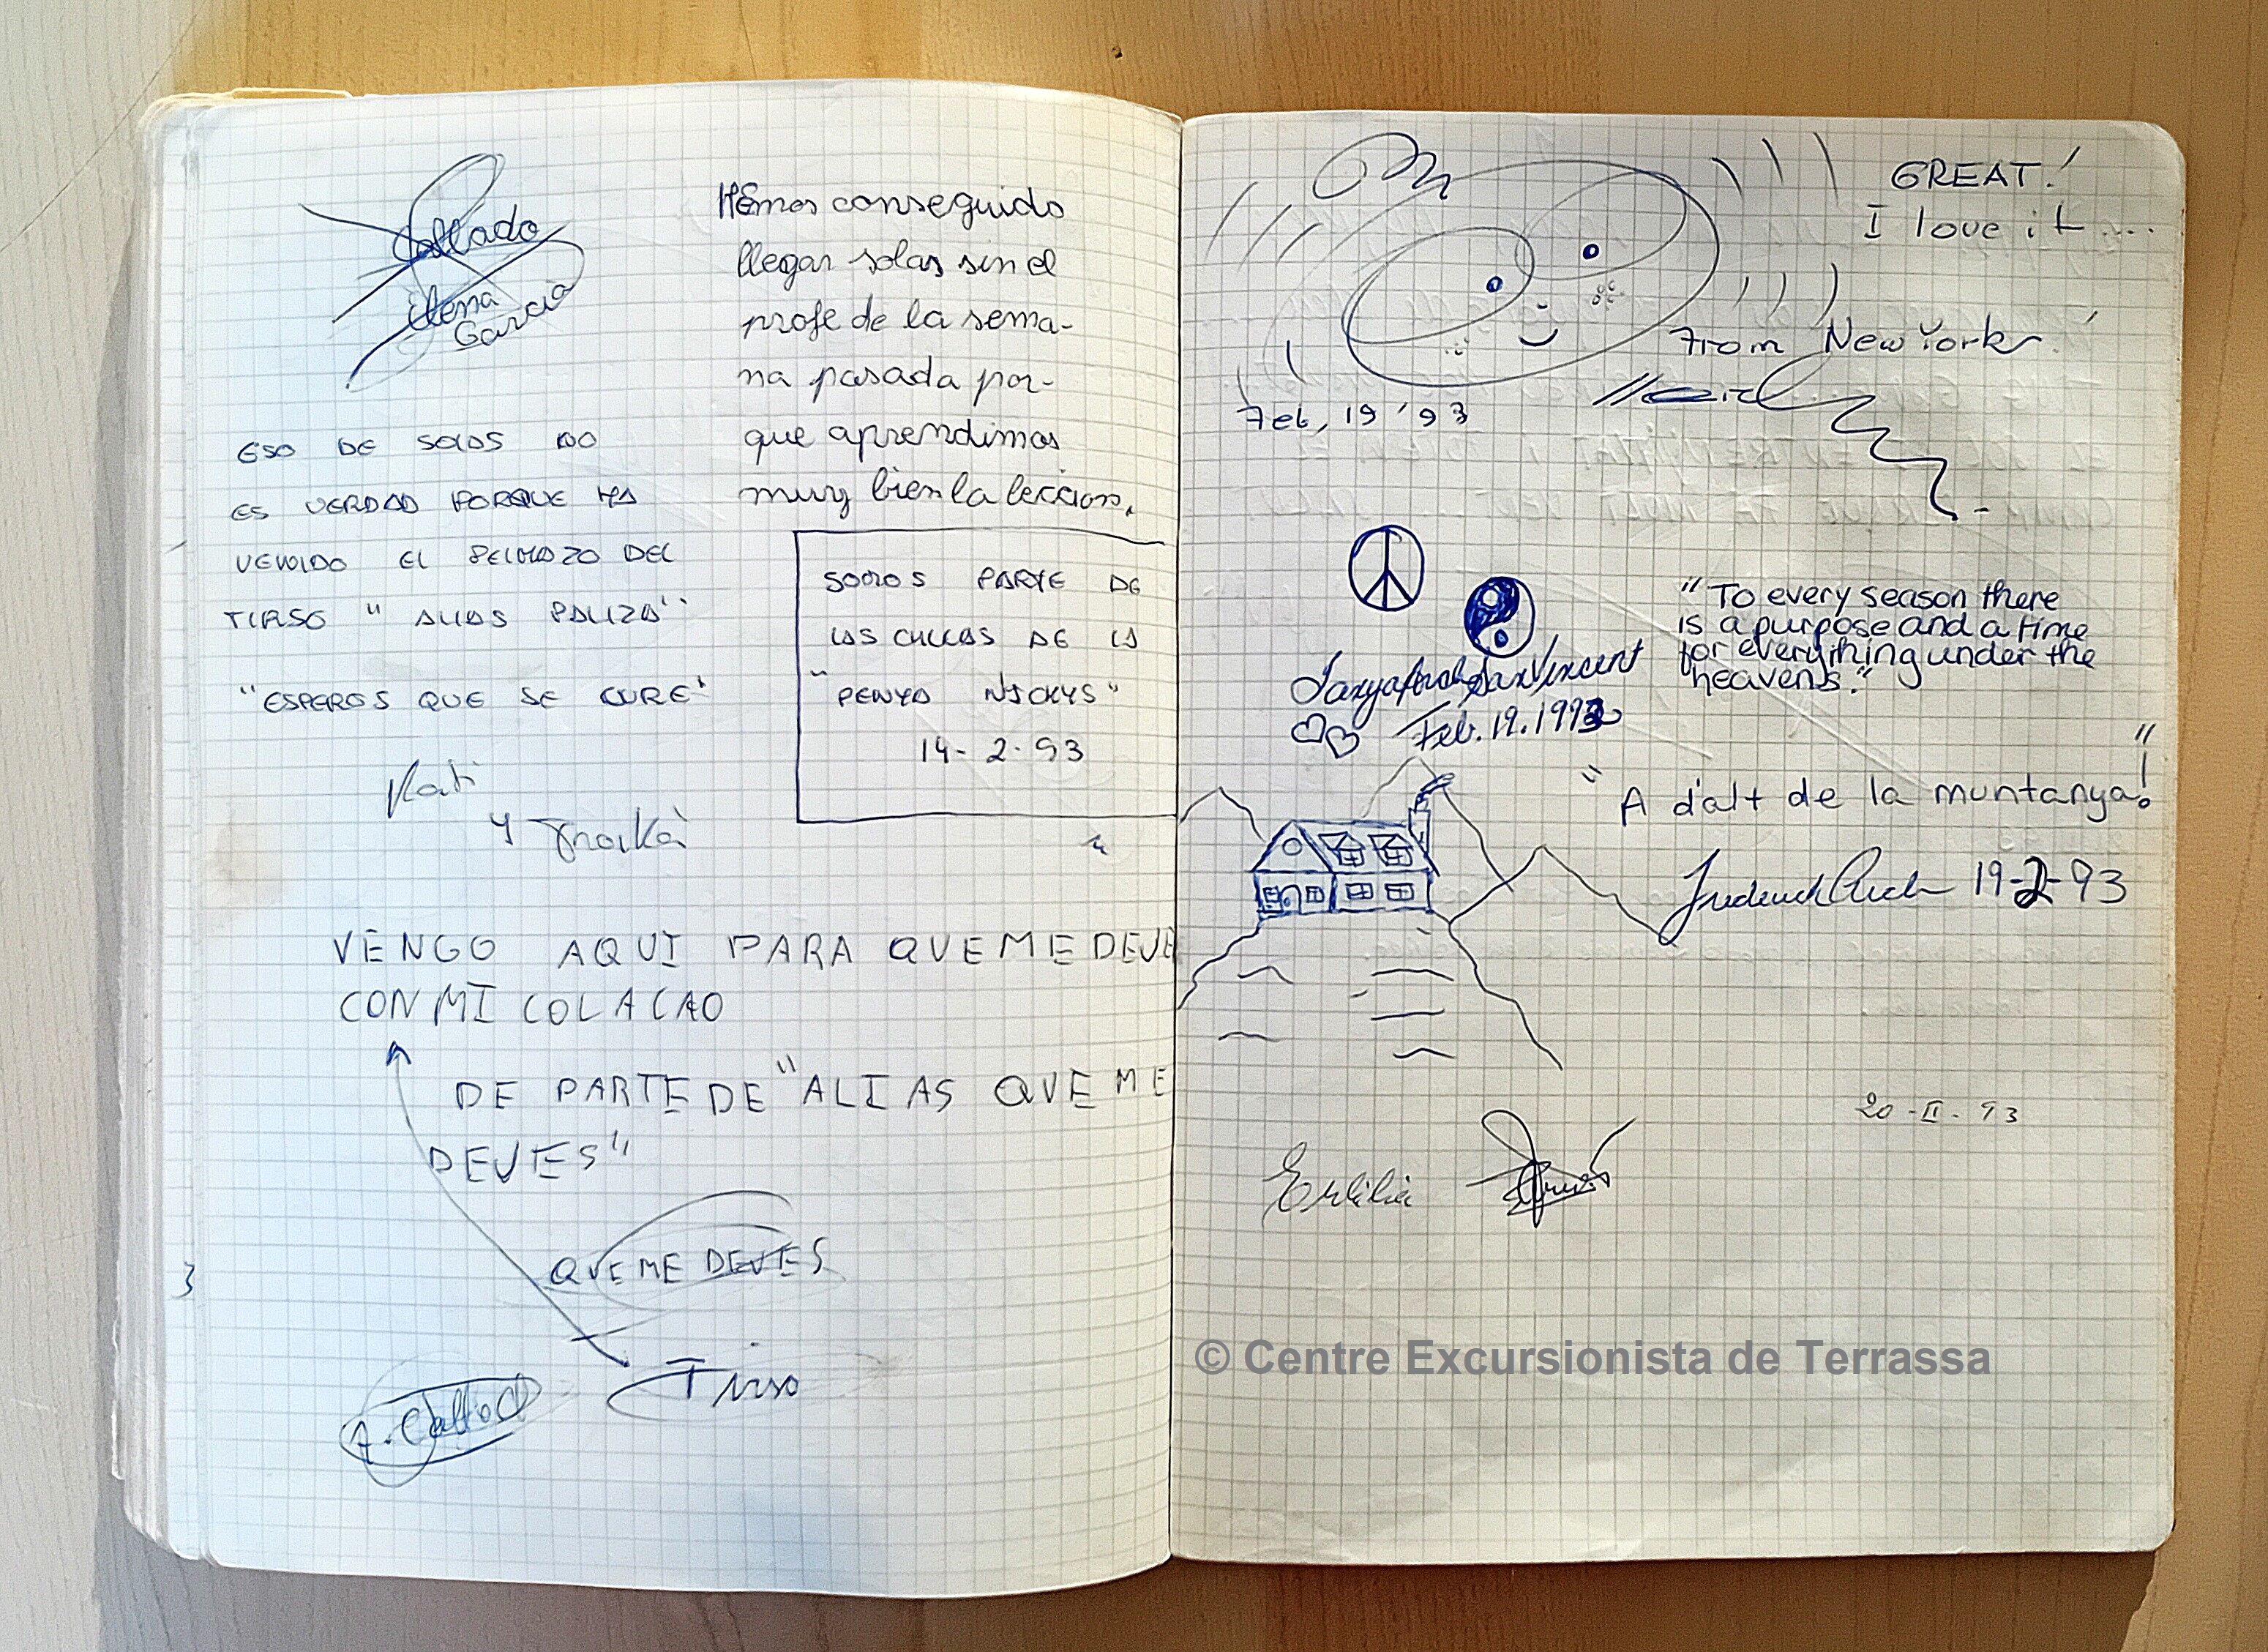 Collado
Elena
Garcia
Hemos conseguido
llegar solas sin el
profe de la sema-
na pasada por-
que aprendimos
muy bien la leccion.
ESO DE SOLOS NO
ES VERDAD PORQUE HA
VENIDO EL PELMAZO DEL
TIRSO "ALIAS PALIZA"
"ESPEROS QUE SE CURE"
Kati
Y
SOMOS PARTE DE
LAS CHICAS DE LA
"PENYA NICKYS"
14-2-93
VENGO AQUI PARA QUE ME DEJE
CON MI COLACAO
DE PARTE DE "ALIAS QUE ME
DEJES"
QUE ME DEJES
Tirso
GREAT!
I love it...
From New York
Feb, 19 '93
"To every season there
is a purpose and a time
for everything under the
heavens."
Feb. 19. 1993
"A dalt de la muntanya!"
19-2-93
20-II-93
© Centre Excursionista de Terrassa